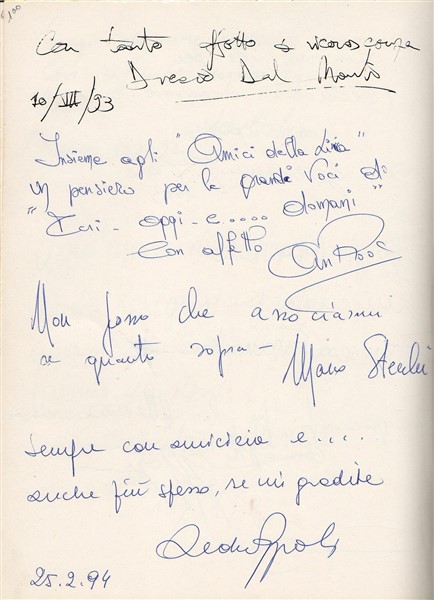 Con tanto affetto e riconoscenza
Dal Monte
10/VII/93
Insieme agli "Amici della Lirica"
un pensiero per le grandi Voci di
"Ieri - oggi - e.... domani"
con affetto
Non posso che associarmi
a quanto sopra -
Mario
sempre con amicizia e....
anche più spesso, se mi gradite
25.2.94